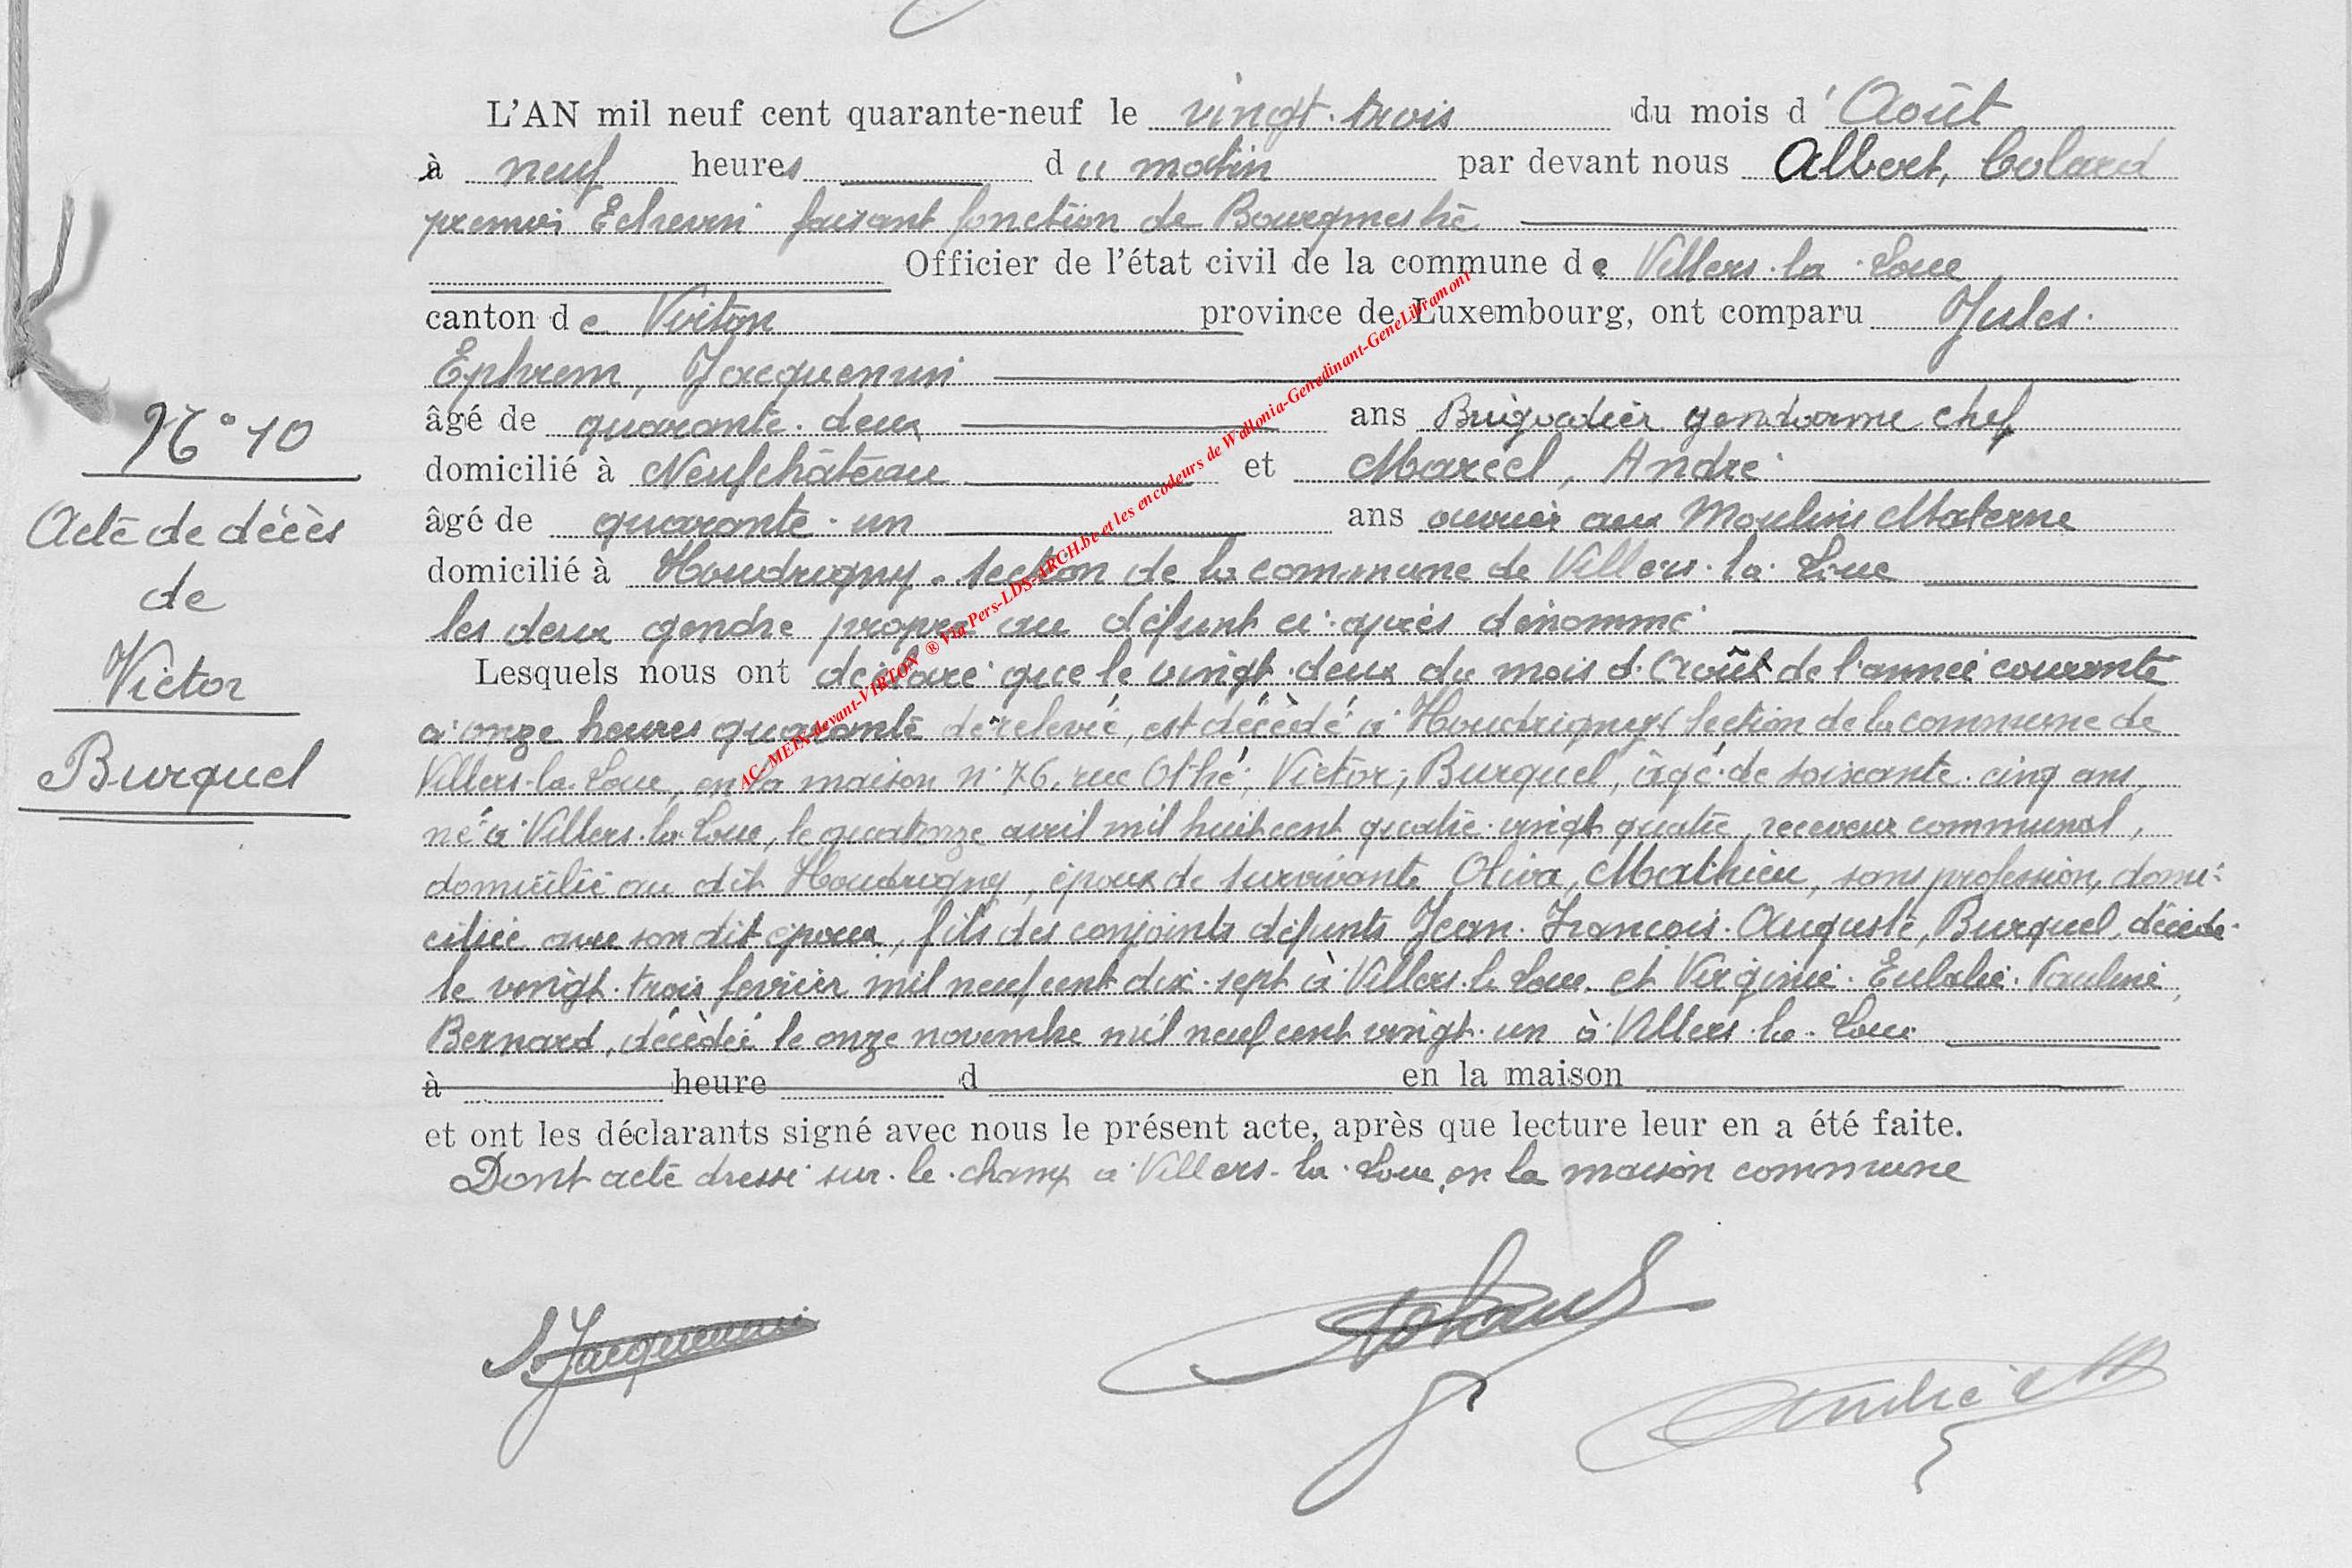 L'AN mil neuf cent quarante-neuf le vingt-trois du mois d'Août
à neuf heures du matin par devant nous Albert, Colard
premier Echevin faisant fonction de Bourgmestre
Officier de l'état civil de la commune de Villers-la-Loue
canton de Virton province de Luxembourg, ont comparu Jules-
Ephrem, Jacquemin
âgé de quarante-deux ans Brigadier gendarme chef
domicilié à Neufchâteau et Marcel, André
âgé de quarante-un ans ouvrier aux Moulins Materne
domicilié à Houdrigny-section de la commune de Villers-la-Loue
les deux gendre propre au défunt ci-après dénommé
Lesquels nous ont déclaré que le vingt-deux du mois d'Août de l'année courante
à onze heures quarante de relevée, est décédé à Houdrigny section de la commune de
Villers-la-Loue, en la maison n°76, rue Othé, Victor, Burquel, âgé de soixante-cinq ans,
né à Villers-la-Loue, le quatorze avril mil huit cent quatre-vingt quatre, receveur communal,
domicilié au dit Houdrigny, époux de survivante Oliva, Mathieu, sans profession, domi-
ciliée avec son dit époux, fils des conjoints défunts Jean-François-Auguste, Burquel, décédé
le vingt-trois fevrier mil neuf cent dix-sept à Villers-la-Loue, et Virginie-Eulalie-Pauline,
Bernard, décédée le onze novembre mil neuf cent vingt-un à Villers-la-Loue
à heure d en la maison
et ont les déclarants signé avec nous le présent acte, après que lecture leur en a été faite.
Dont acte dressé sur-le-champ à Villers-la-Loue, en la maison commune
N° 10
Acte de décès
de
Victor
Burquel
J. Jacquemin
Colard
André M
AC- MEIX-devant-VIRTON ® Via Pers-LDS-ARCH.be et les encodeurs de Wallonia-Genedinant-GeneLibramont